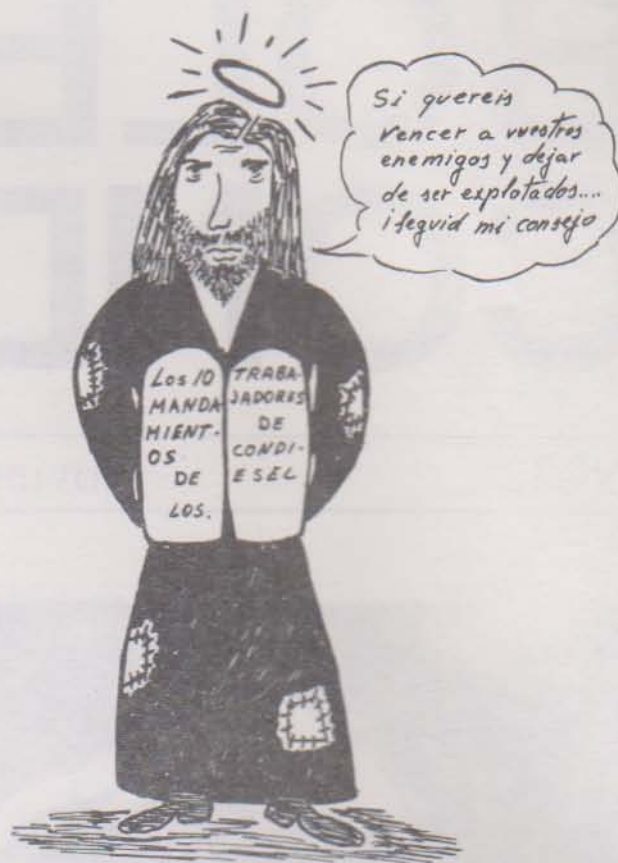 Si quereis
vencer a vuestros
enemigos y dejar
de ser explotados....
¡seguid mi consejo
Los 10
MANDA-
MIENT-
OS
DE
LOS.
TRABA-
JADORES
DE
CONDI-
ESEL